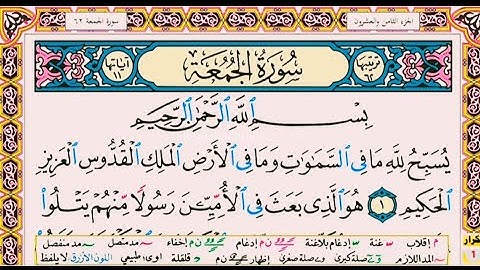 الجزء الثامن والعشرون
سورة الجمعة ٦٢
ترتيبها ٦٢
سُورَةُ الجُمُعَةِ
آياتها ١١
بِسْمِ ٱللَّهِ ٱلرَّحْمَٰنِ ٱلرَّحِيمِ
يُسَبِّحُ لِلَّهِ مَا فِى ٱلسَّمَٰوَٰتِ وَمَا فِى ٱلْأَرْضِ ٱلْمَلِكِ ٱلْقُدُّوسِ ٱلْعَزِيزِ
ٱلْحَكِيمِ ١ هُوَ ٱلَّذِى بَعَثَ فِى ٱلْأُمِّيِّـۧنَ رَسُولًا مِّنْهُمْ يَتْلُوا۟
م إقلاب غنة إدغام بلاغنة ن م إدغام ن م إخفاء مد متصل مد منفصل
المد اللازم صلة كبرى صلة صغرى إظهار ن م قلقلة اوى، طبيعي اللون الأزرق لا يلفظ
تكرار
1